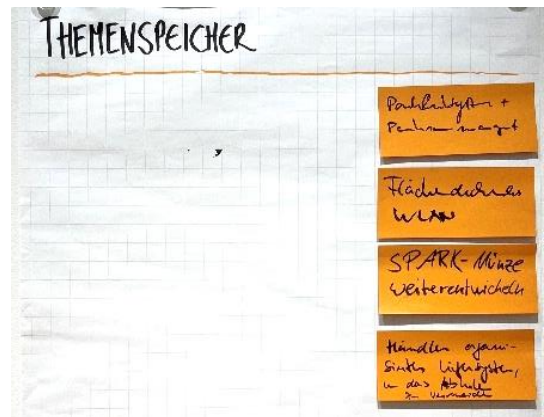 THEMENSPEICHER
Parkleitsystem +
Flächendeckendes
WLAN
SPARK-Münze
weiterentwickeln
Händler organi-
siertes Liefersystem,
um das Abholen
zu vermeiden